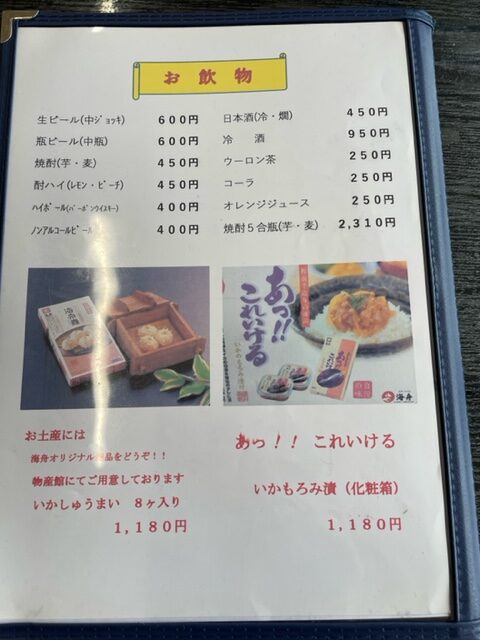 お飲物
生ビール(中ｼﾞｮｯｷ) 600円
瓶ビール(中瓶) 600円
焼酎(芋・麦) 450円
酎ハイ(ﾚﾓﾝ・ﾋﾟｰﾁ) 450円
ﾊｲﾎﾞｰﾙ(ﾊﾞｰﾎﾞﾝｳｲｽｷｰ) 400円
ﾉﾝｱﾙｺｰﾙﾋﾞｰﾙ 400円
日本酒(冷・燗) 450円
冷 酒 950円
ウーロン茶 250円
コーラ 250円
オレンジジュース 250円
焼酎５合瓶(芋・麦) 2,310円
あっ!!
これいける
いかのもろみ漬
海舟
お土産には
海舟オリジナル商品をどうぞ！！
物産館にてご用意しております
いかしゅうまい ８ヶ入り
1,180円
あっ！！ これいける
いかもろみ漬（化粧箱）
1,180円